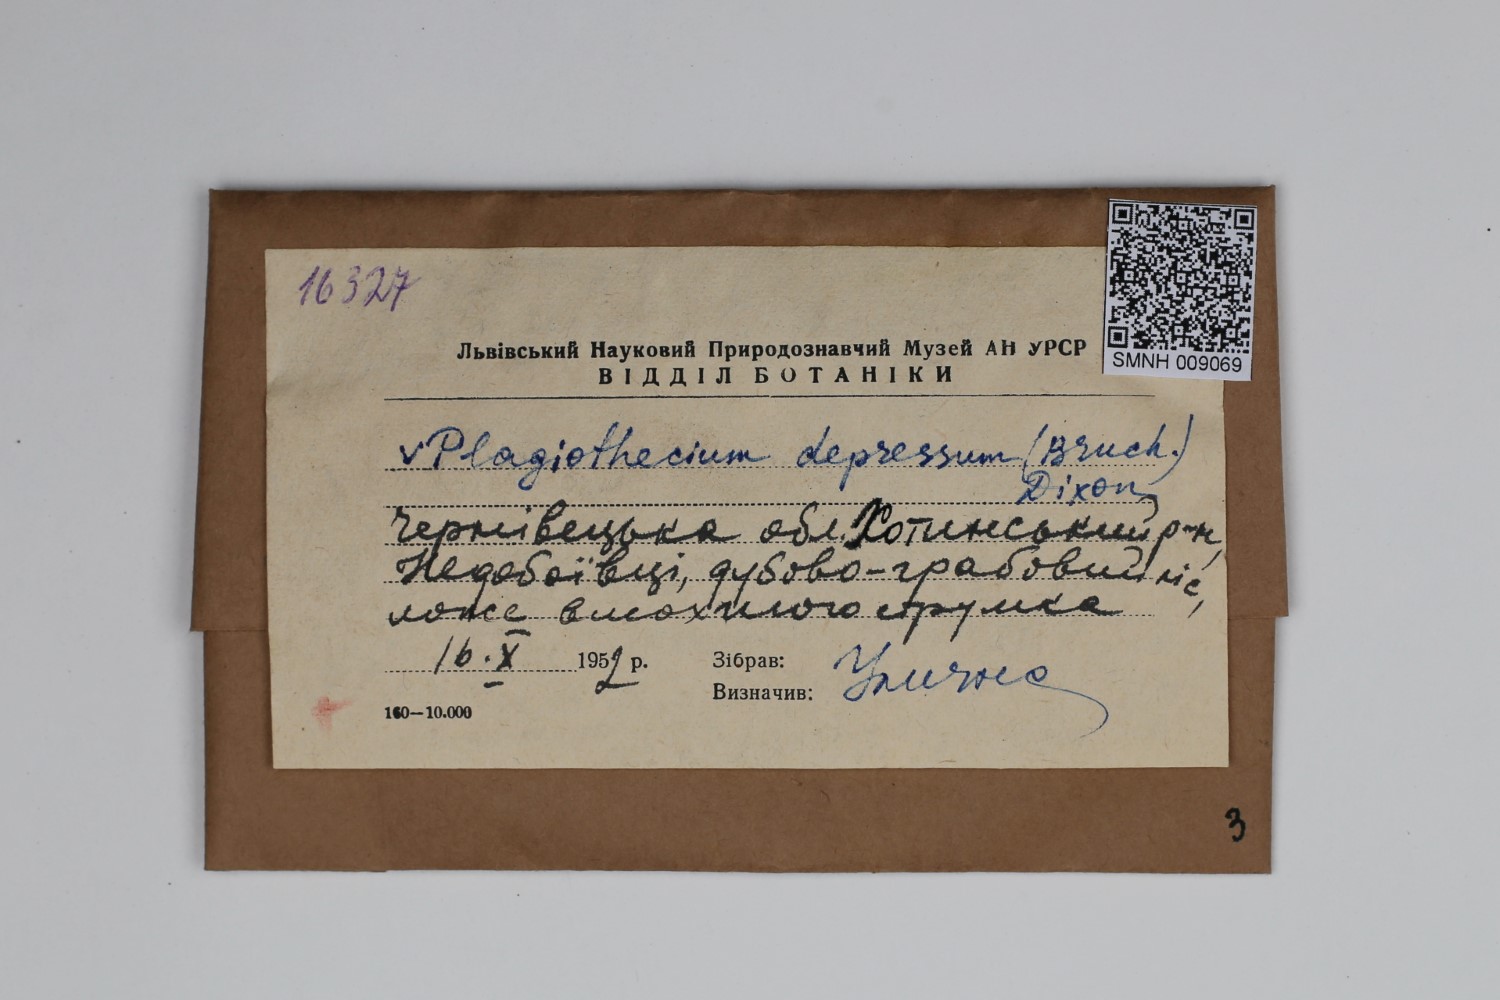 16327
Львівський Науковий Природознавчий Музей АН УРСР
ВІДДІЛ БОТАНІКИ
SMNH 009069
√ Plagiothecium depressum (Bruch.)
Dixon
Чернівецька обл. Хотинський р-н,
Недобоївці, дубово-грабовий ліс,
ложе висохлого струмка
16.X 1952 р.
Зібрав:
Визначив: Улична
160—10.000
3